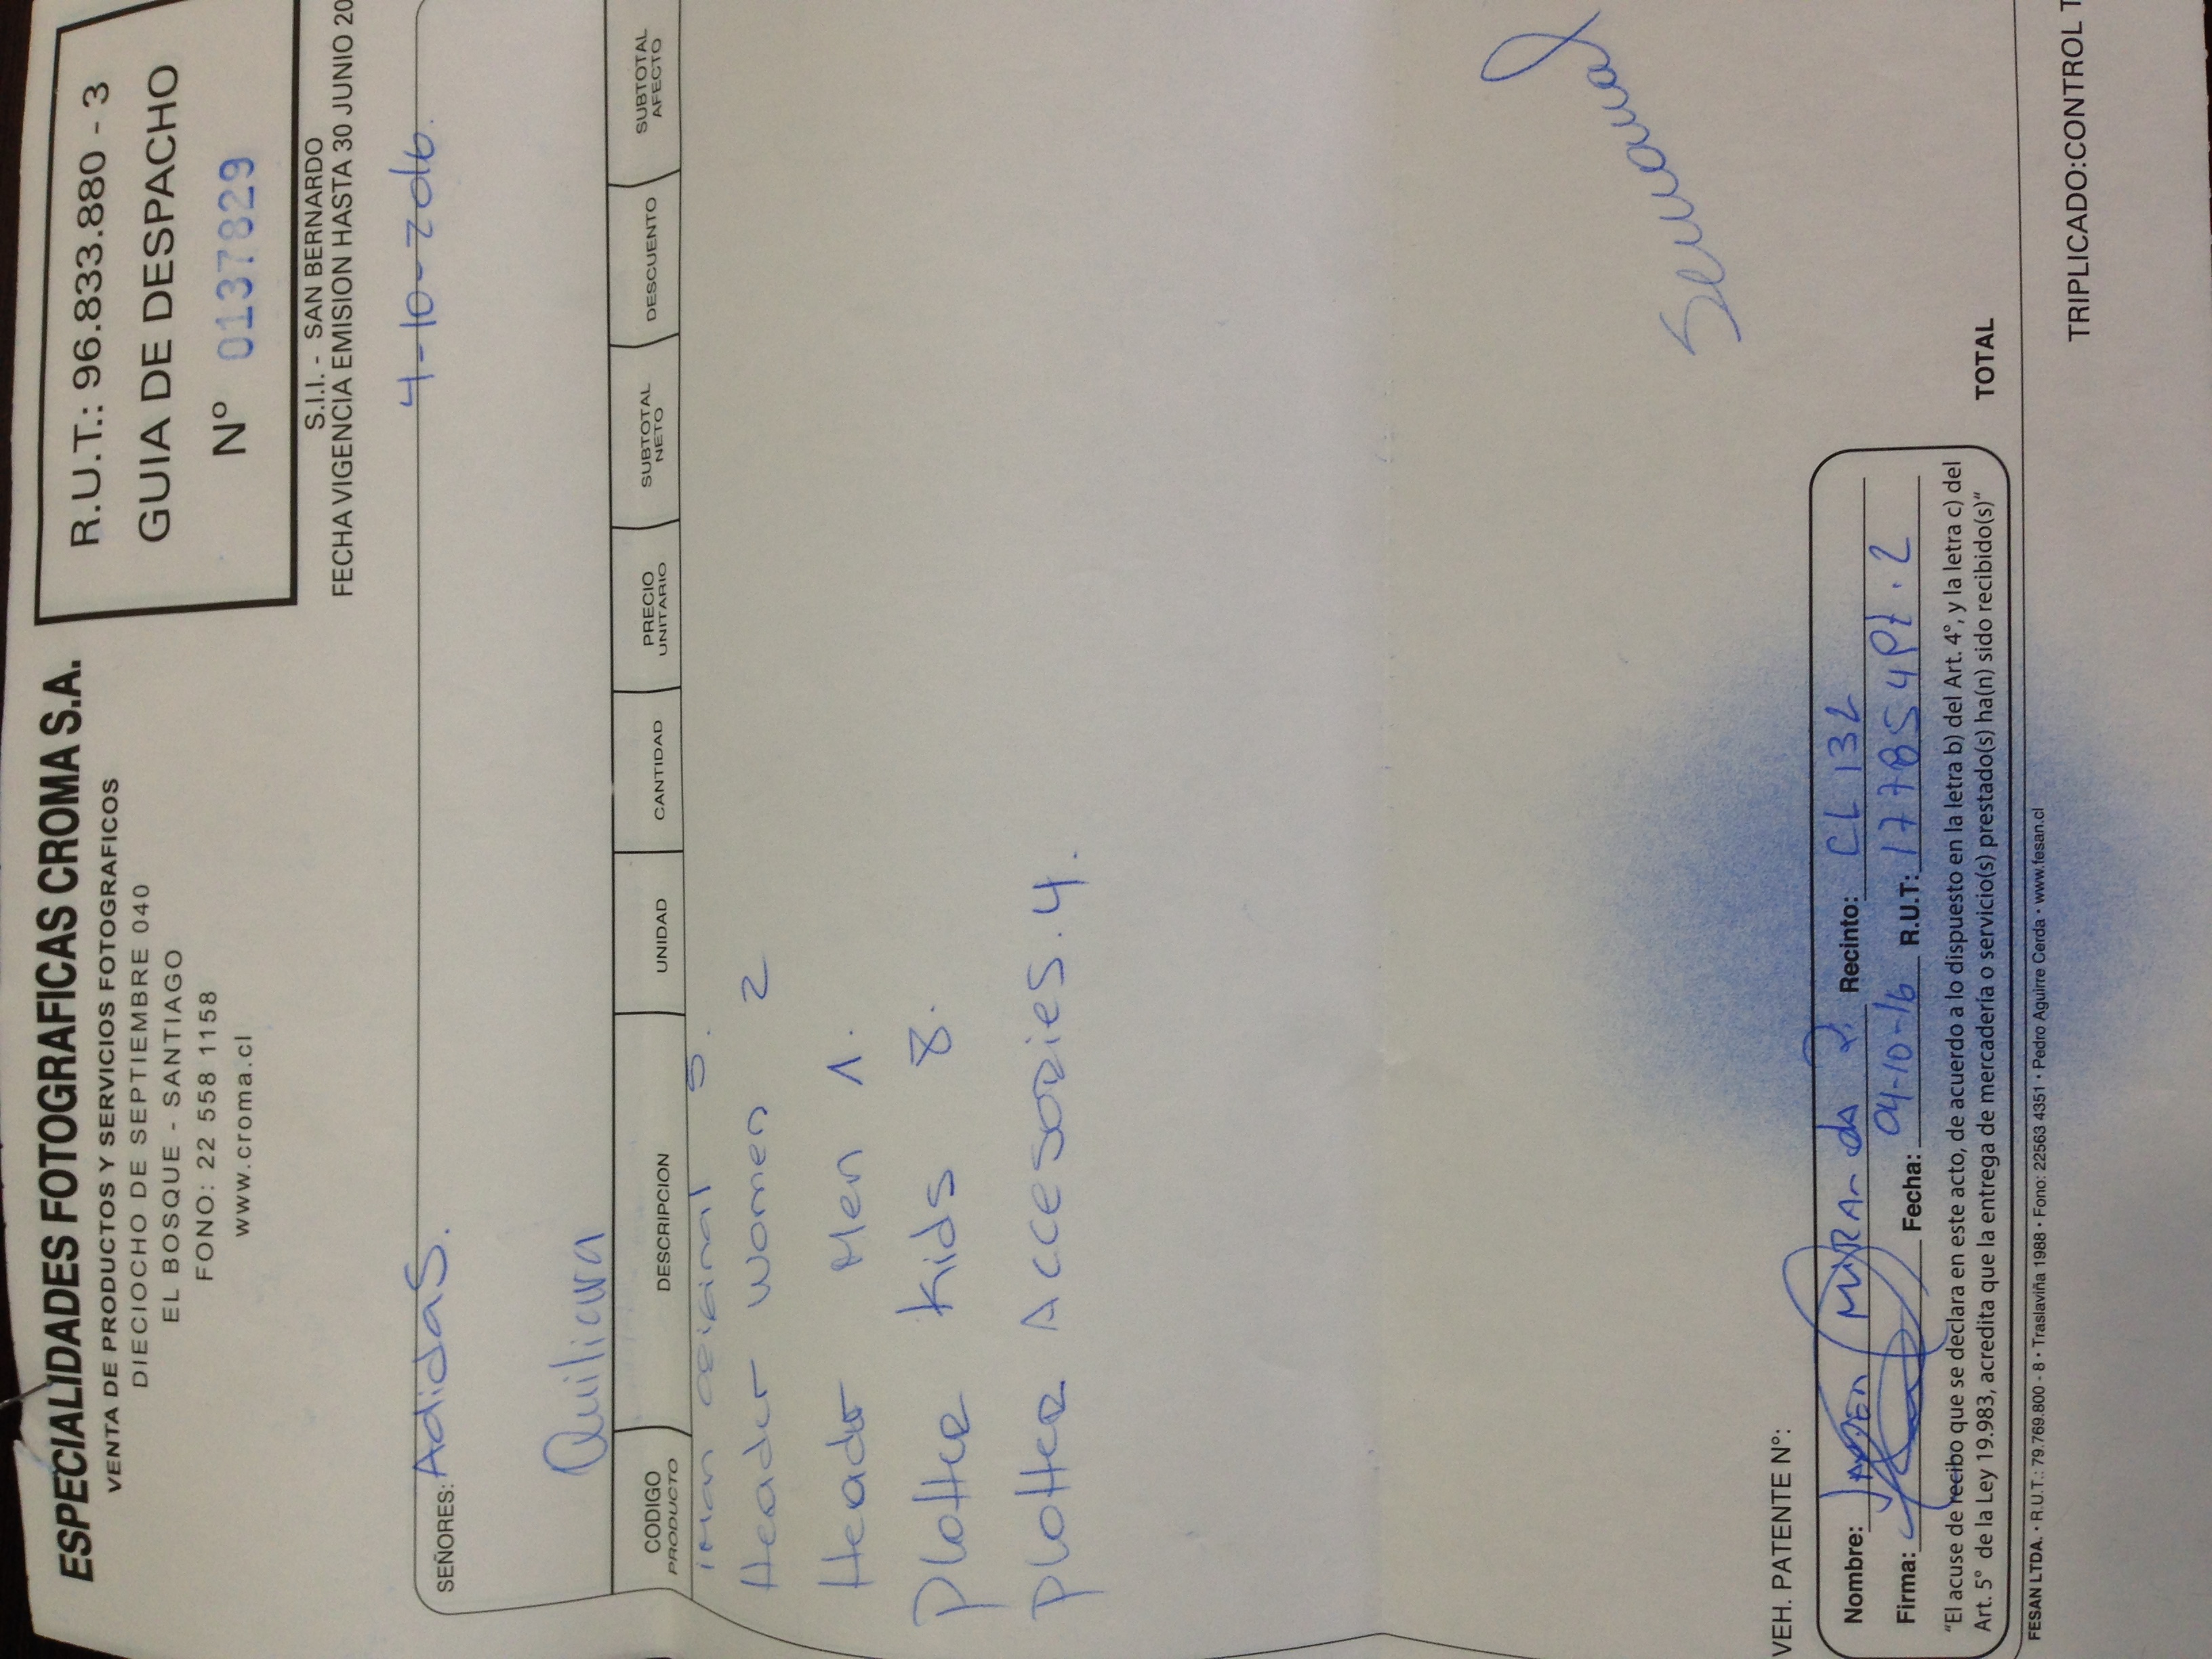 ESPECIALIDADES FOTOGRAFICAS CROMA S.A.
VENTA DE PRODUCTOS Y SERVICIOS FOTOGRAFICOS
DIECIOCHO DE SEPTIEMBRE 040
EL BOSQUE - SANTIAGO
FONO: 22 558 1158
www.croma.cl
R.U.T.: 96.833.880 - 3
GUIA DE DESPACHO
Nº 0137829
S.I.I. - SAN BERNARDO
FECHA VIGENCIA EMISION HASTA 30 JUNIO 20
4-10-2016.
SEÑORES: Adidas.
Quilicura
CODIGO PRODUCTO DESCRIPCION UNIDAD CANTIDAD PRECIO UNITARIO SUBTOTAL NETO DESCUENTO SUBTOTAL AFECTO
Header women 2
Header Men 1.
Plotter Kids 8.
Plotter Accesories. 4.
Semanal
VEH. PATENTE Nº:
Nombre: Miranda Recinto: CL132
Firma: Fecha: 04-10-16 R.U.T:
"El acuse de recibo que se declara en este acto, de acuerdo a lo dispuesto en la letra b) del Art. 4°, y la letra c) del
Art. 5° de la Ley 19.983, acredita que la entrega de mercadería o servicio(s) prestado(s) ha(n) sido recibido(s)"
TOTAL
FESAN LTDA. • R.U.T.: 79.769.800 - 8 • Traslaviña 1988 • Fono: 22563 4351 • Pedro Aguirre Cerda • www.fesan.cl
TRIPLICADO:CONTROL T